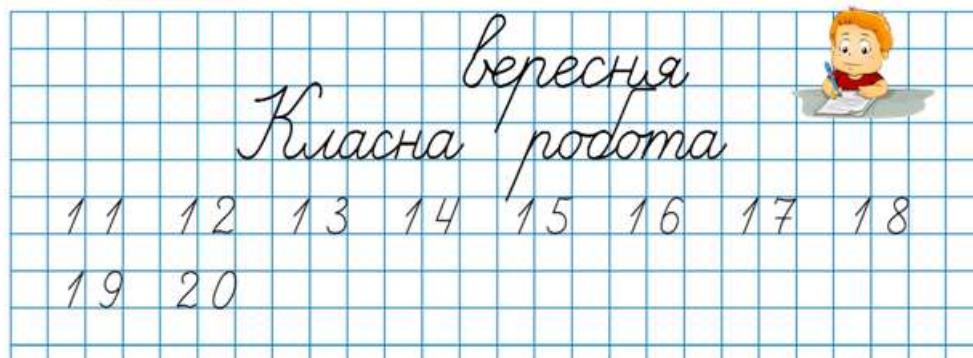 вересня
Класна робота
11 12 13 14 15 16 17 18
19 20